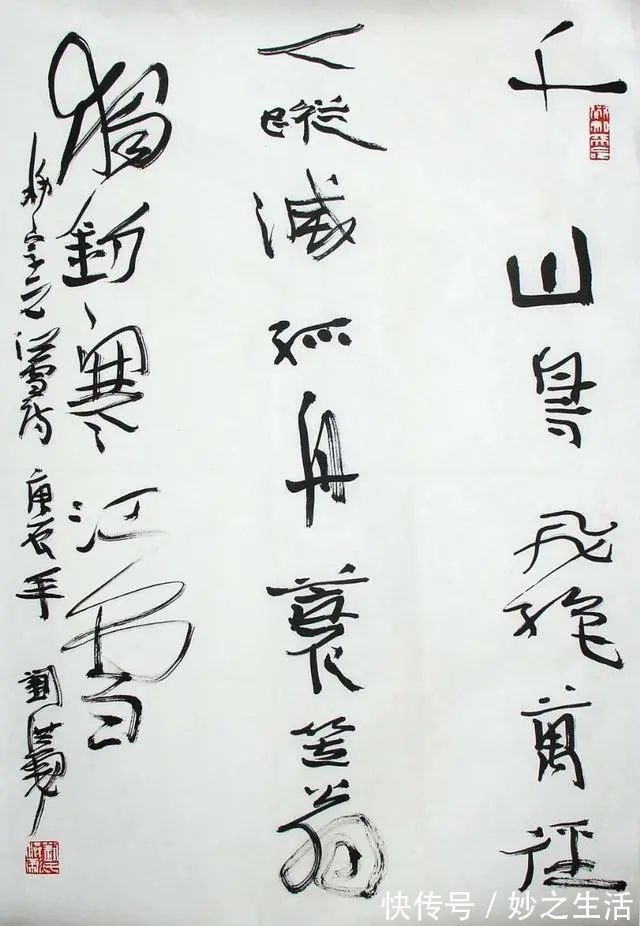 千山鳥飛絶萬徑
人蹤滅孤舟蓑笠翁
獨釣寒江雪
柳宗元江雪詩 庚辰年 劉洪彪
快传号 / 妙之生活